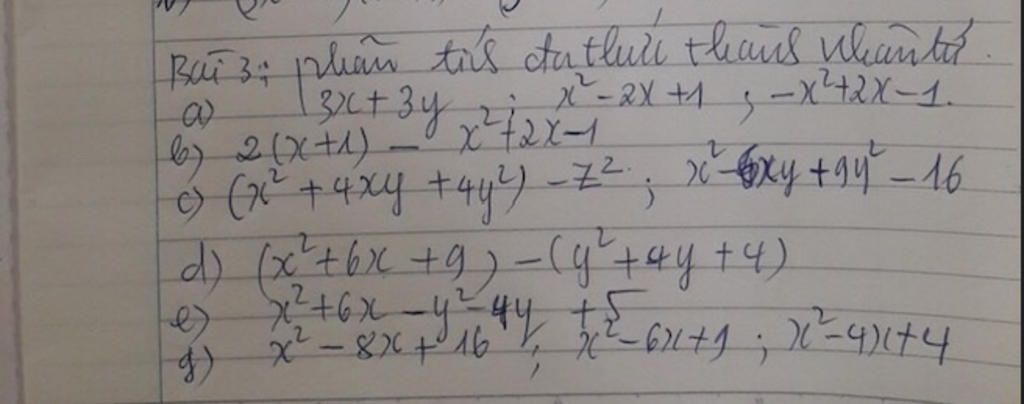 Bài 3: phân tích đa thức thành nhân tử.
a) 3x + 3y ; x² - 2x + 1 ; -x² + 2x - 1.
b) 2(x+1) - x² + 2x - 1
c) (x² + 4xy + 4y²) - z² ; x² - 6xy + 9y² - 16
d) (x² + 6x + 9) - (y² + 4y + 4)
e) x² + 6x - y² - 4y + 5
g) x² - 8x + 16 ; x² - 6x + 9 ; x² - 4x + 4